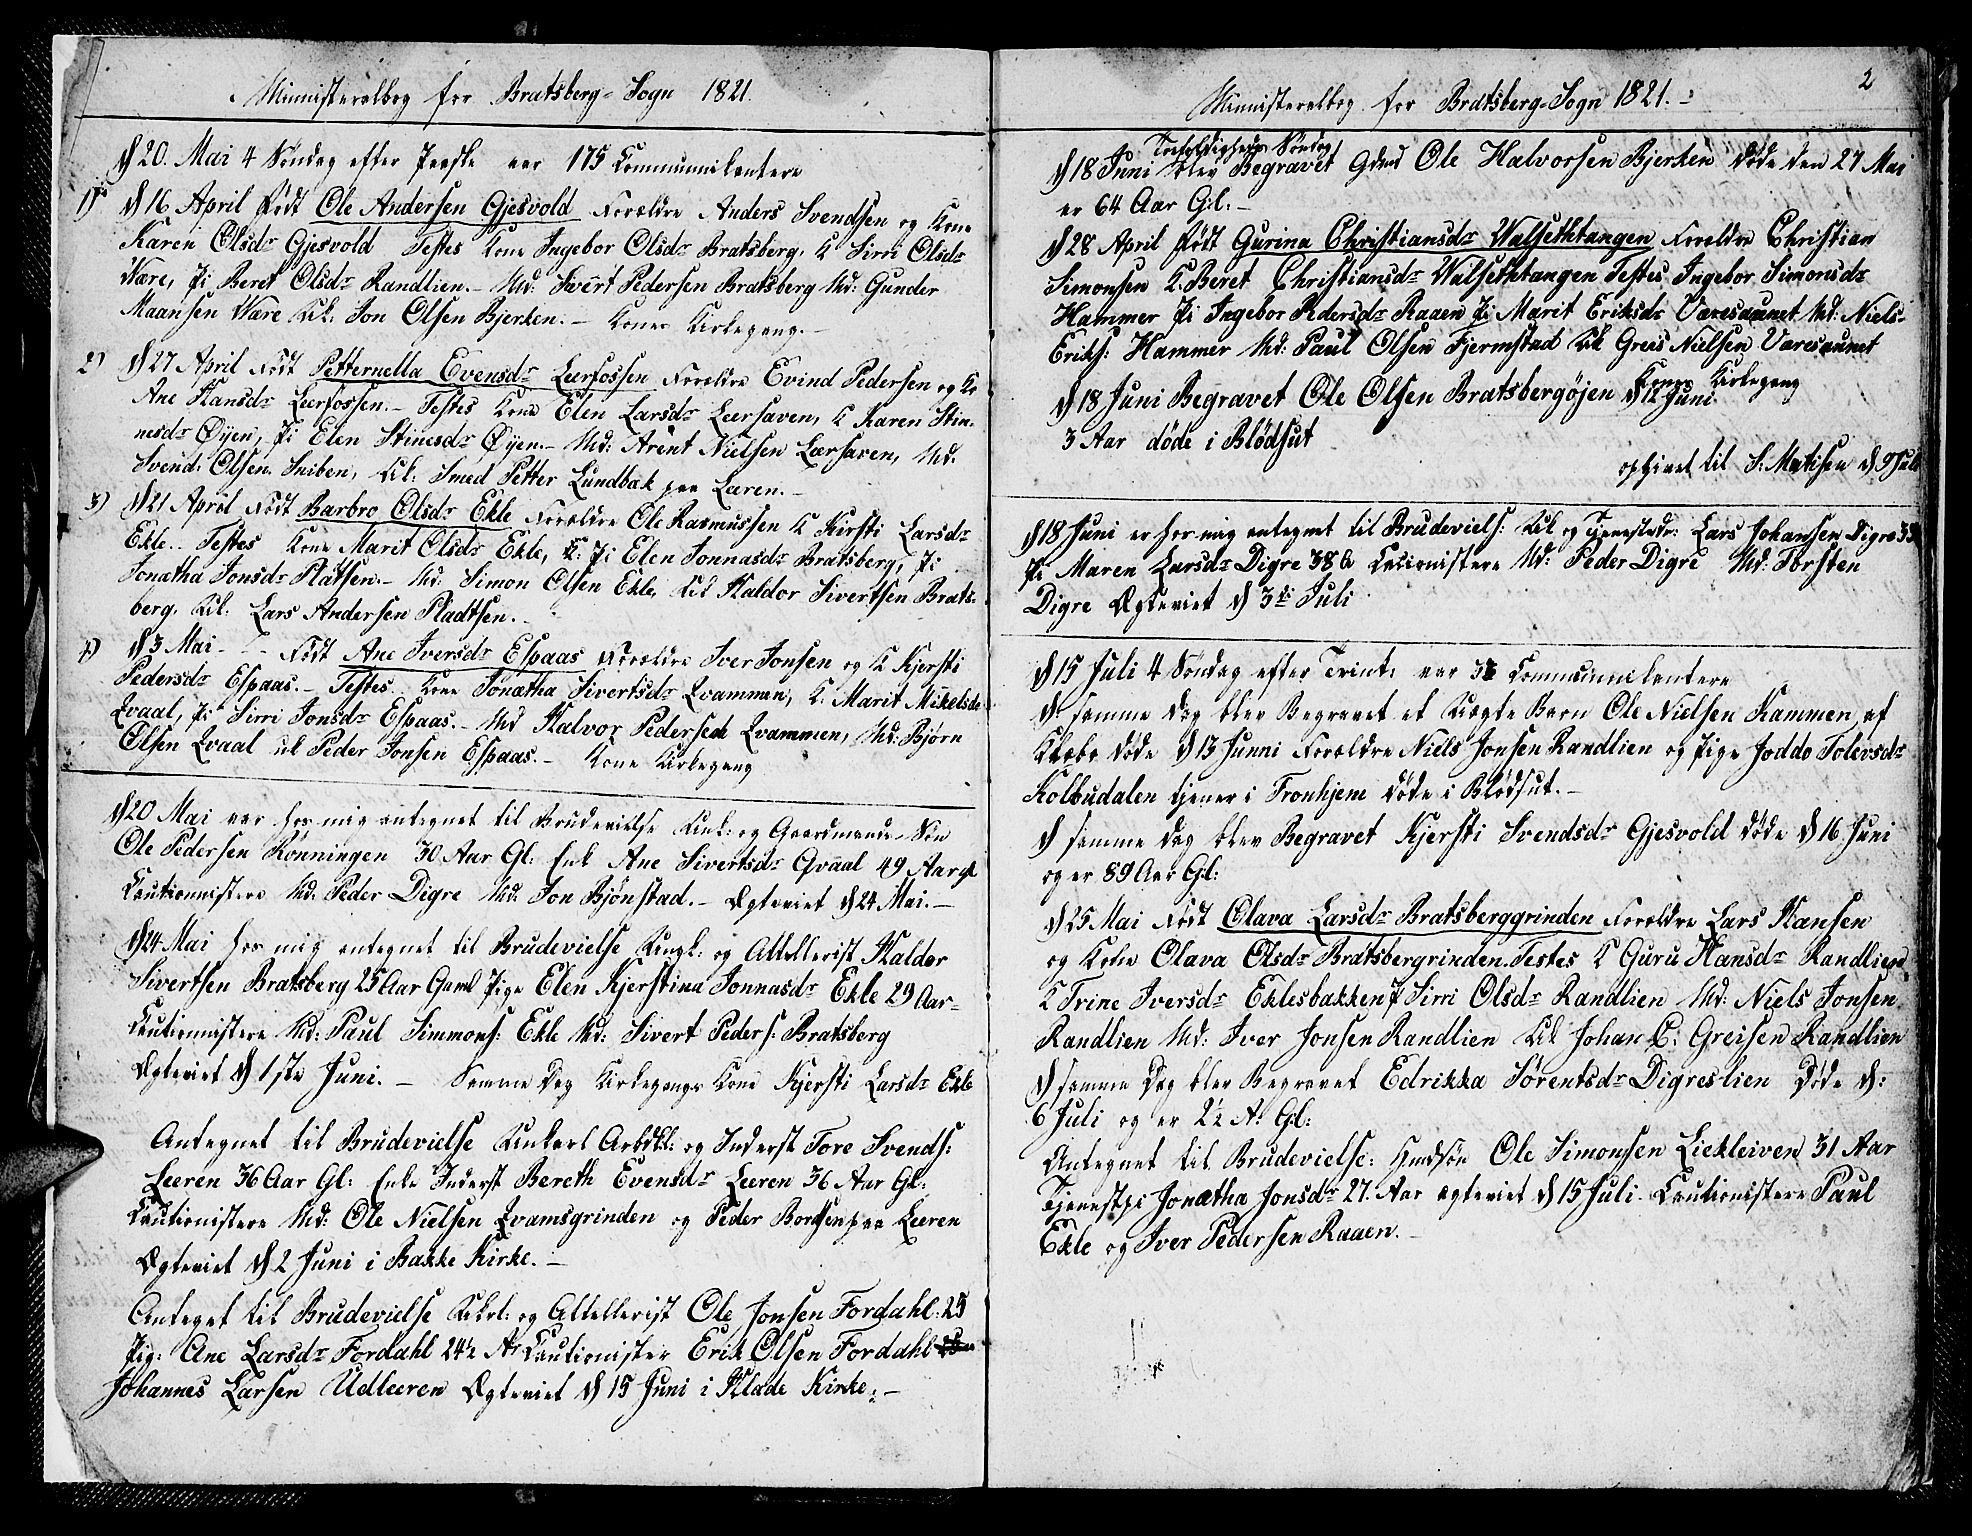 Ministeralbog for Bratsberg-Sogn 1821.
D 20. Mai 4 Søndag efter Paaske var 175 Communicantere
1) D 16 April født Ole Andersen Gjesvold Forældre Anders Svendsen og Kone
Karen Olsdr Gjesvold Testes Kone Ingebor Olsdr Bratsberg, K Sirri Olsdr
Være, Pi Beret Olsdr Randlien.- Md: Svert Pedersen Bratsberg Md: Gunder
Maansen Være Uk: Jon Olsen Bjerken. - Kones Kirkegang. -
2) D 27 April Født Petternella Evensdr Leerfossen Forældre Evind Pedersen og K
Ane Hansdr Leerfossen.- Testes Kone Elen Larsdr Leersaven, K Karen Stin-
nesdr Øijen, Pi Elen Stinesdr Øijen.- Md: Arent Nielsen Lersaven, Md.
Svend Olsen Sniben, Uk: Smed Petter Lundbak paa Leeren. -
3) D 21 April Født Barbro Olsdr Ekle Forældre Ole Rasmussen K Kirsti Larsdr
Ekle.. Testes Kone Marit Olsdr Ekle, K: Pi Elen Jonnasdr Bratsberg, Pi
Jonatha Jonsdr Pladtsen.- Md. Simon Olsen Ekle, Uk Haldor Sivertsen Brats-
berg. Uk: Lars Andersen Pladtsen. -
4) D 3 Mai - - Født Ane Iversdr Espaas Forældre Iver Jonsen og K Kjersti
Pedersdr Espaas. - Testes Kone Jonatha Sivertsdr Qvammen, K. Marit Mikelsdr
Qvaal, Pi Sirri Jonsdr Espaas. - Md Halvor Pedersen Qvammen, Md. Bjørn
Olsen Qvaal uk Peder Jonsen Espaas. - Kone Kirkegang
D 20 Mai var hos mig antegnet til Brudevielse Unk: og Gaardmands-Søn
Ole Pedersen Rønningen 30 Aar Gl: Enk Ane Sivertsdr Qvaal 49 Aar gl
Cautionnistere Md: Peder Digre Md: Jon Bjønstad. - Ægteviet D 24 Mai. -
D 24 Mai hos mig antegnet til Brudevielse Ungk: og Attellerist Haldor
Sivertsen Bratsberg 25 Aar Gaml Pige Elen Kjerstina Jonnasdr Ekle 29 Aar-
Cautionnistere Md: Paul Simmons: Ekle Md: Sivert Peders: Bratsberg
Ægteviet D 1ste Juni. - Samme Dag Kirkegangs Kone Kjersti Larsdr Ekle
Antegnet til Brudevielse Unkarl Arbdkl: og Inderst Tore Svends:
Leeren 36 Aar Gl: Enke Inderst Bereth Evensdr Leeren 36 Aar Gl:
Cautionistere Md: Ole Nielsen Qvamsgrinden og Peder Bordsen paa Leeren
Ægteviet D 2 Juni i Bakke Kirke. -
Anteget til Brudevielse Unkl: og Attellerist Ole Jonsen Fordahl: 25
Pig: Ane Larsdr Fordahl 24½ Ar Cautionister Erik Olsen Fordahl
Johannes Larsen Udleeren Ægteviet D 15 Juni i Hlade Kirke: -
2
Ministeralbog for Bratsberg-Sogn 1821. -
Trefoldigheds Søndag
D 18 Juni blev Begravet Gdmd Ole Halvorsen Bjerken Døde den 27 Mai
er 64 Aar Gl: -
D 28 April Født Gurina Christiansdr Walsethtangen Forældre Christian
Simonsen K. Beret Christiansdr Walsethtangen Testes Ingebor Simonsdr
Hammer Pi Ingebor Pedersdr Raaen Pi Marit Eriksdr Væresaunet Md: Niels
Eriks: Hammer Md: Paul Olsen Fjermstad Uk Greis Nielsen Væresaunet
Kones Kirkegang
D 18 Juni Begravet Ole Olsen Bratsbergøjen D 12 Juni
3 Aar døde i Blødsut
opgivet til S: Matisen D 9 Juli
D 18 Juni er hos mig antegnet til Brudeviels: Uk og Tjenestedr: Lars Johansen Digre 33
Pi Maren Larsdr Digre 38 A Cationistere Md: Peder Digre Md: Torsten
Digre Ægteviet D 3di Juli
D 15 Juli 4 Søndag efter Trint: var 38 Communicantere
D. samme Dag blev Begravet et Uægte Barn Ole Nielsen Kammen, af
Klæbo døde D 13 Junni Forældre Niels Jonsen Randlien og Pige Joddo Tolevsdr
Kolbudalen tjener i Tronhjem døde i Blødsut. -
D samme Dag blev Begravet Kjersti Svendsdr Gjesvold døde D 16 Juni
og er 89 Aar Gl:
D 25 Mai Født Olava Larsdr Bratsberggrinden Forældre Lars Hansen
og Kone Olava Olsdr Bratsbergrinden. Testes K Guru Hansdr Randlien
K Trine Iversdr Eklesbakken P Sirri Olsdr Randlien Md: Niels Jonsen
Randlien Md: Iver Jonsen Randlien Uk Johan C: Greisen Randlien
D samme Dag blev Begravet Edrikka Sørentsdr Digreslien Døde D:
6 Juli og er 2½ A: Gl:
Antegnet til Brudevielse: Hmdsøn Ole Simonsen Liekleiven 31 Aar
Tjenestpi Jonætha Jonsdr 27. Aar ægteviet D 15 Juli. Cautionistere Paul
Ekle og Iver Pedersen Raaen. -